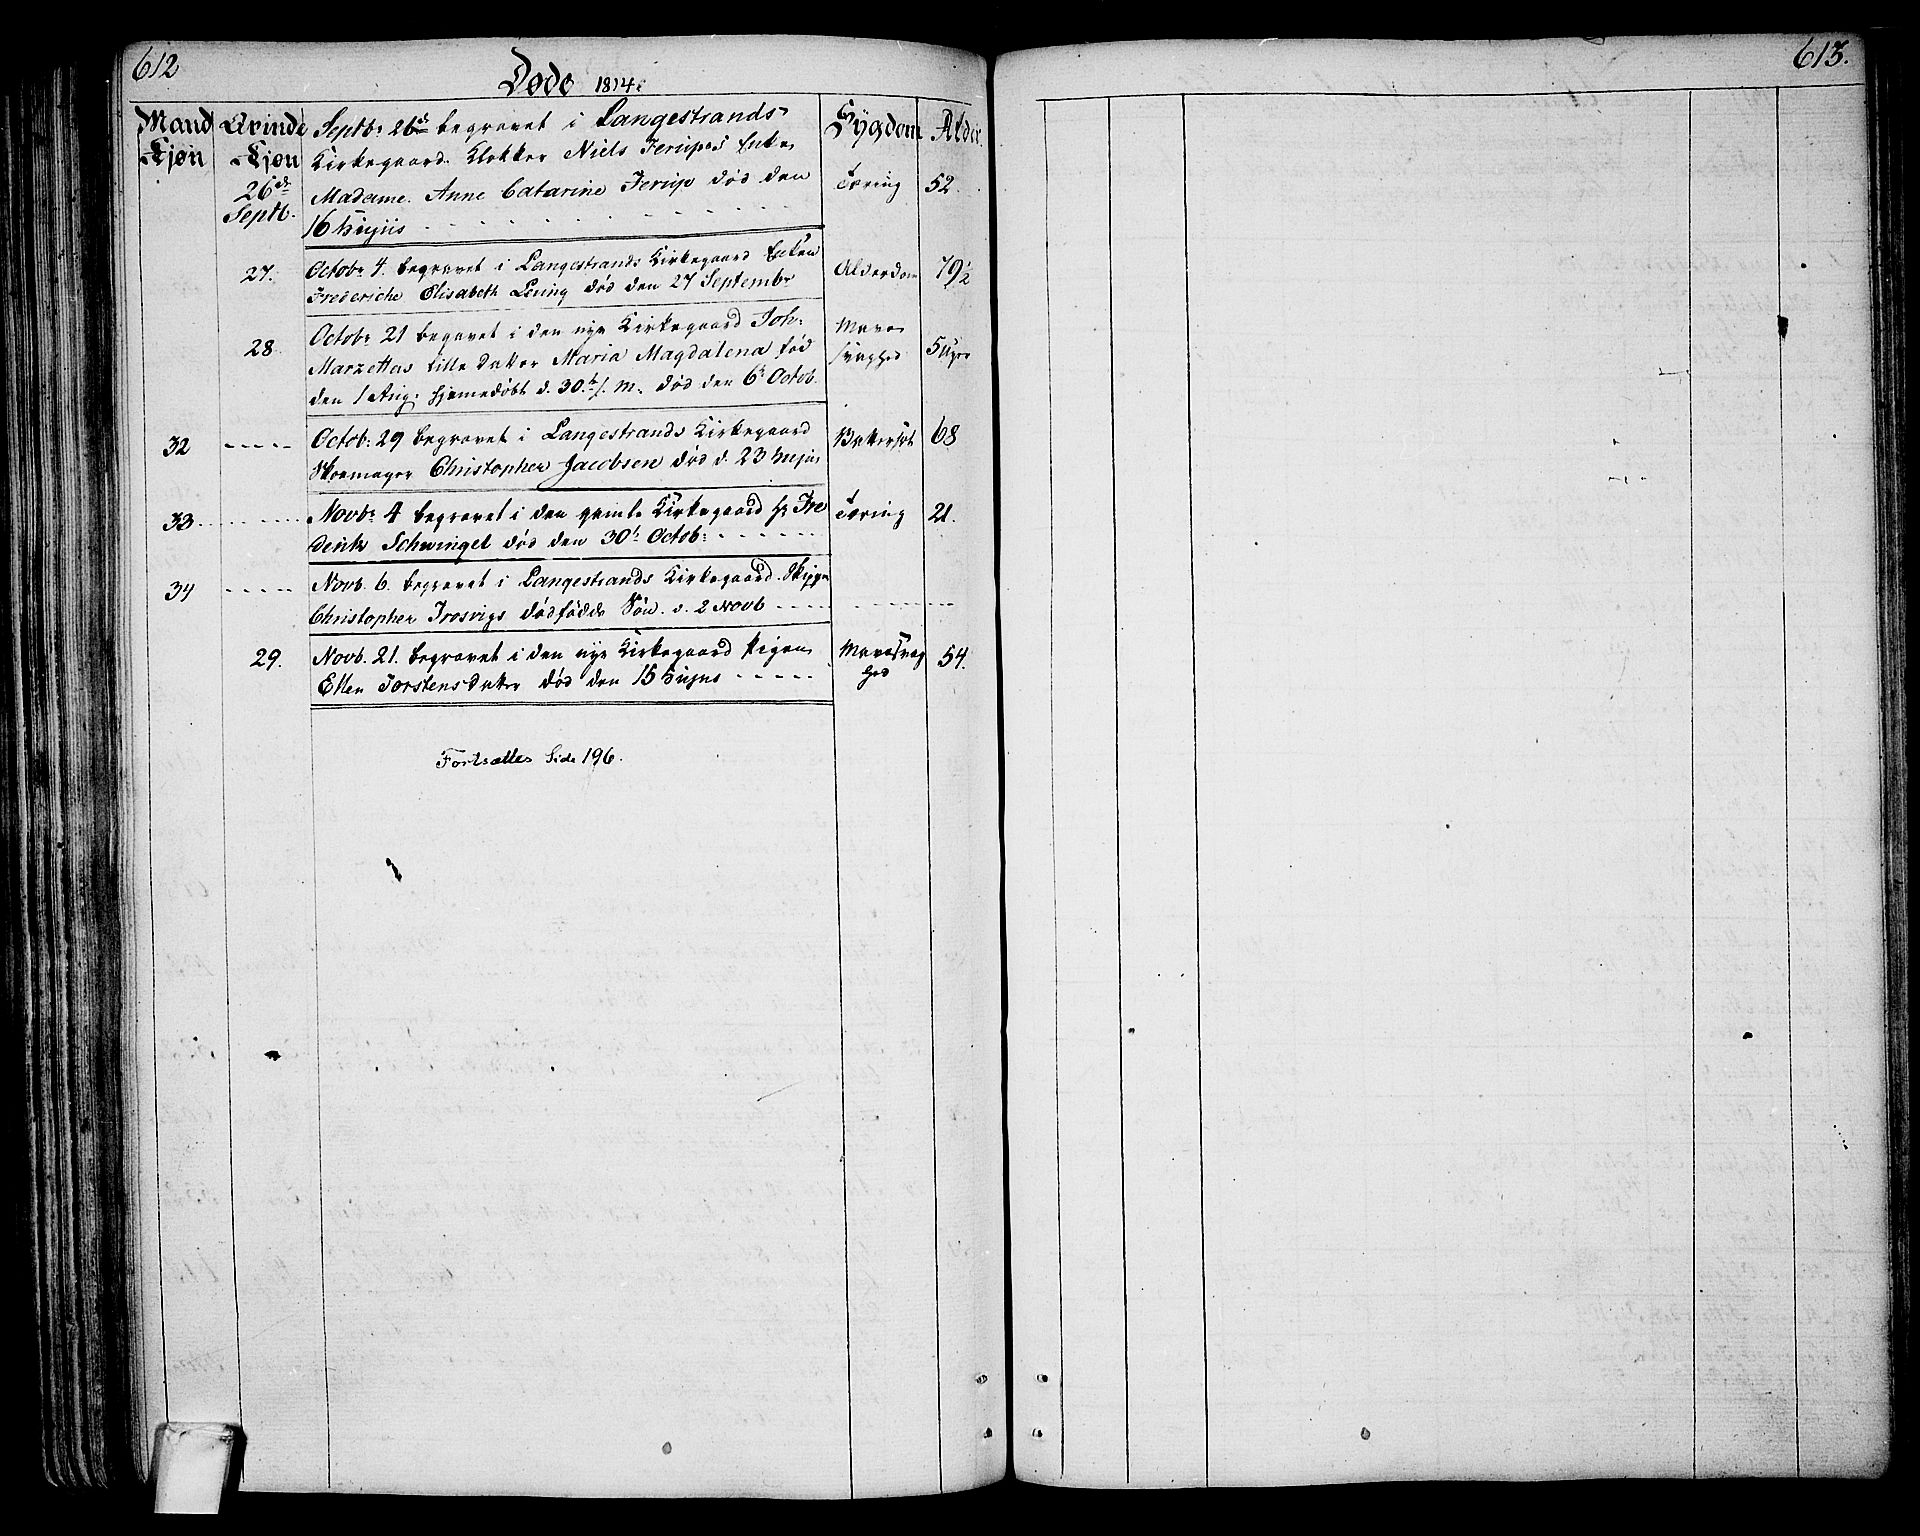 612
Døde 1814.
Mand Kjøn
Qvinde Kjøn
Sygdom
Alder.
26de Septb.
Septbr 26de begravet i Langestrands
Kirkegaard. Klokker Niels Jerups Enke
Madame Anne Catarine Jerup død den
16 hujus
Tæring 52.
27.
Octobr 4. begravet i Langestrands Kirkegaard Enken
Frederiche Elisabeth død den 27 Septembr
Alderdom 79½
28
Octobr 21 begravet i den nye Kirkegaard Joh:
Marzettas lille Datter Maria Magdalena fød
den 1 Aug: hjemedøbt d. 30 død den 6t Octob.
Mave svaghed
5 Uger
32
Octob: 29 begravet i Langestrands Kirkegaard
Skoemager Christopher Jacobsen død d. 23 hujus
68
33
Novbr 4 begravet i den gamle Kirkegaard Hr Fre
derik Schwingel død den 30t Octob:
Tæring 21.
34
Novb. 6. begravet i Langestrands Kirkegaard
Christopher Trosvigs dødfødde Søn. d. 2 Novb
29.
Novb. 21. begravet i den nye Kirkegaard Pigen
Ellen Torstensdatter død den 15 hujus
Mavesvag
hed
54.
Fortsættes Side 196.
613.